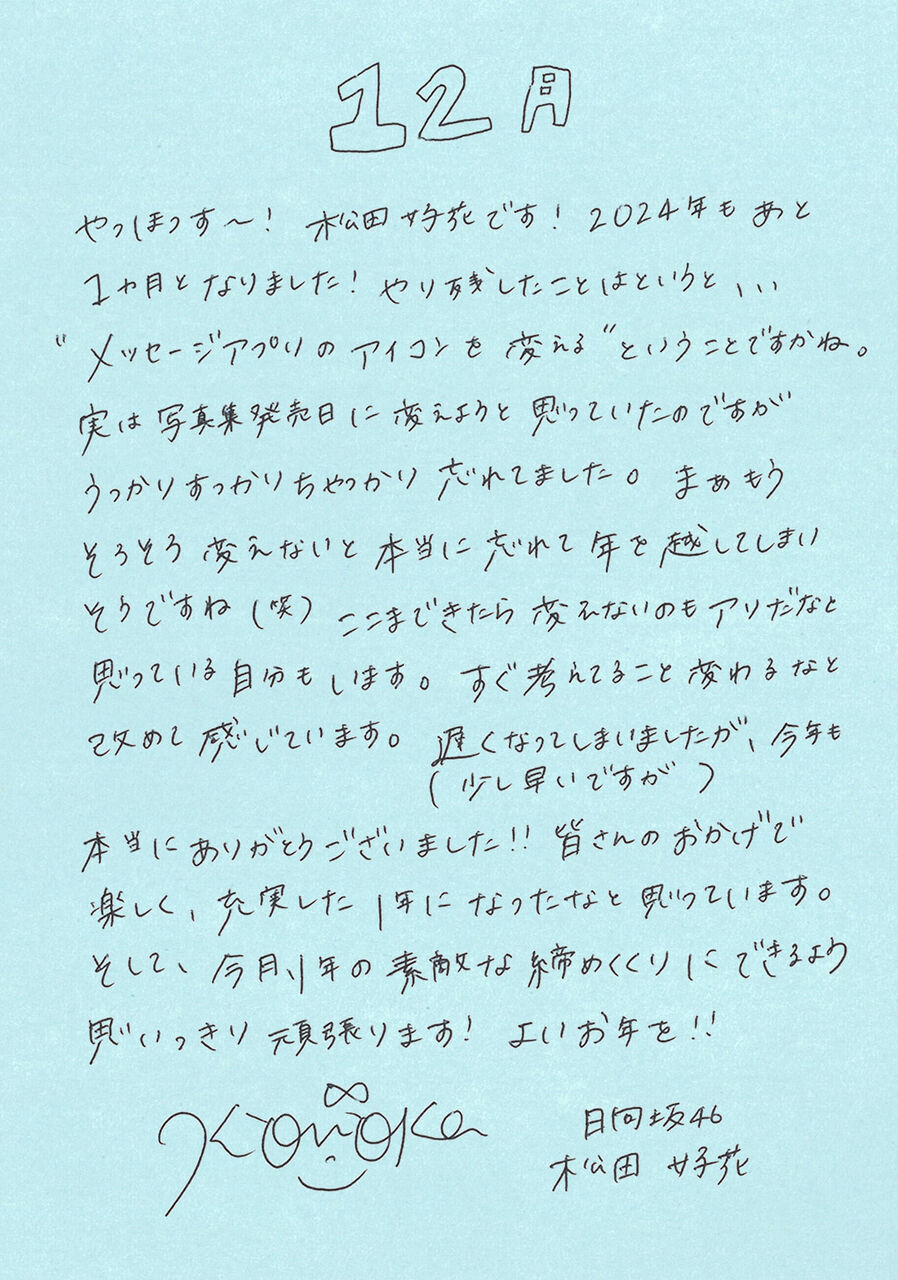 12月
やっほっす〜! 松田好花です! 2024年もあと
1ヵ月となりました! やり残したことはというと、、、
"メッセージアプリのアイコンを変える"ということですかね。
実は写真集発売日に変えようと思っていたのですが
うっかりすっかりちゃっかり忘れてました。まぁもう
そろそろ変えないと本当に忘れて年を越してしまい
そうですね(笑) ここまできたら変えないのもアリだなと
思っている自分もします。すぐ考えてること変わるなと
改めて感じています。遅くなってしまいましたが、今年も
(少し早いですが)
本当にありがとうございました!! 皆さんのおかげで
楽しく、充実した1年になったなと思っています。
そして、今月、1年の素敵な締めくくりにできるよう
思いっきり頑張ります! よいお年を!!
Konoka
日向坂46
松田 好花